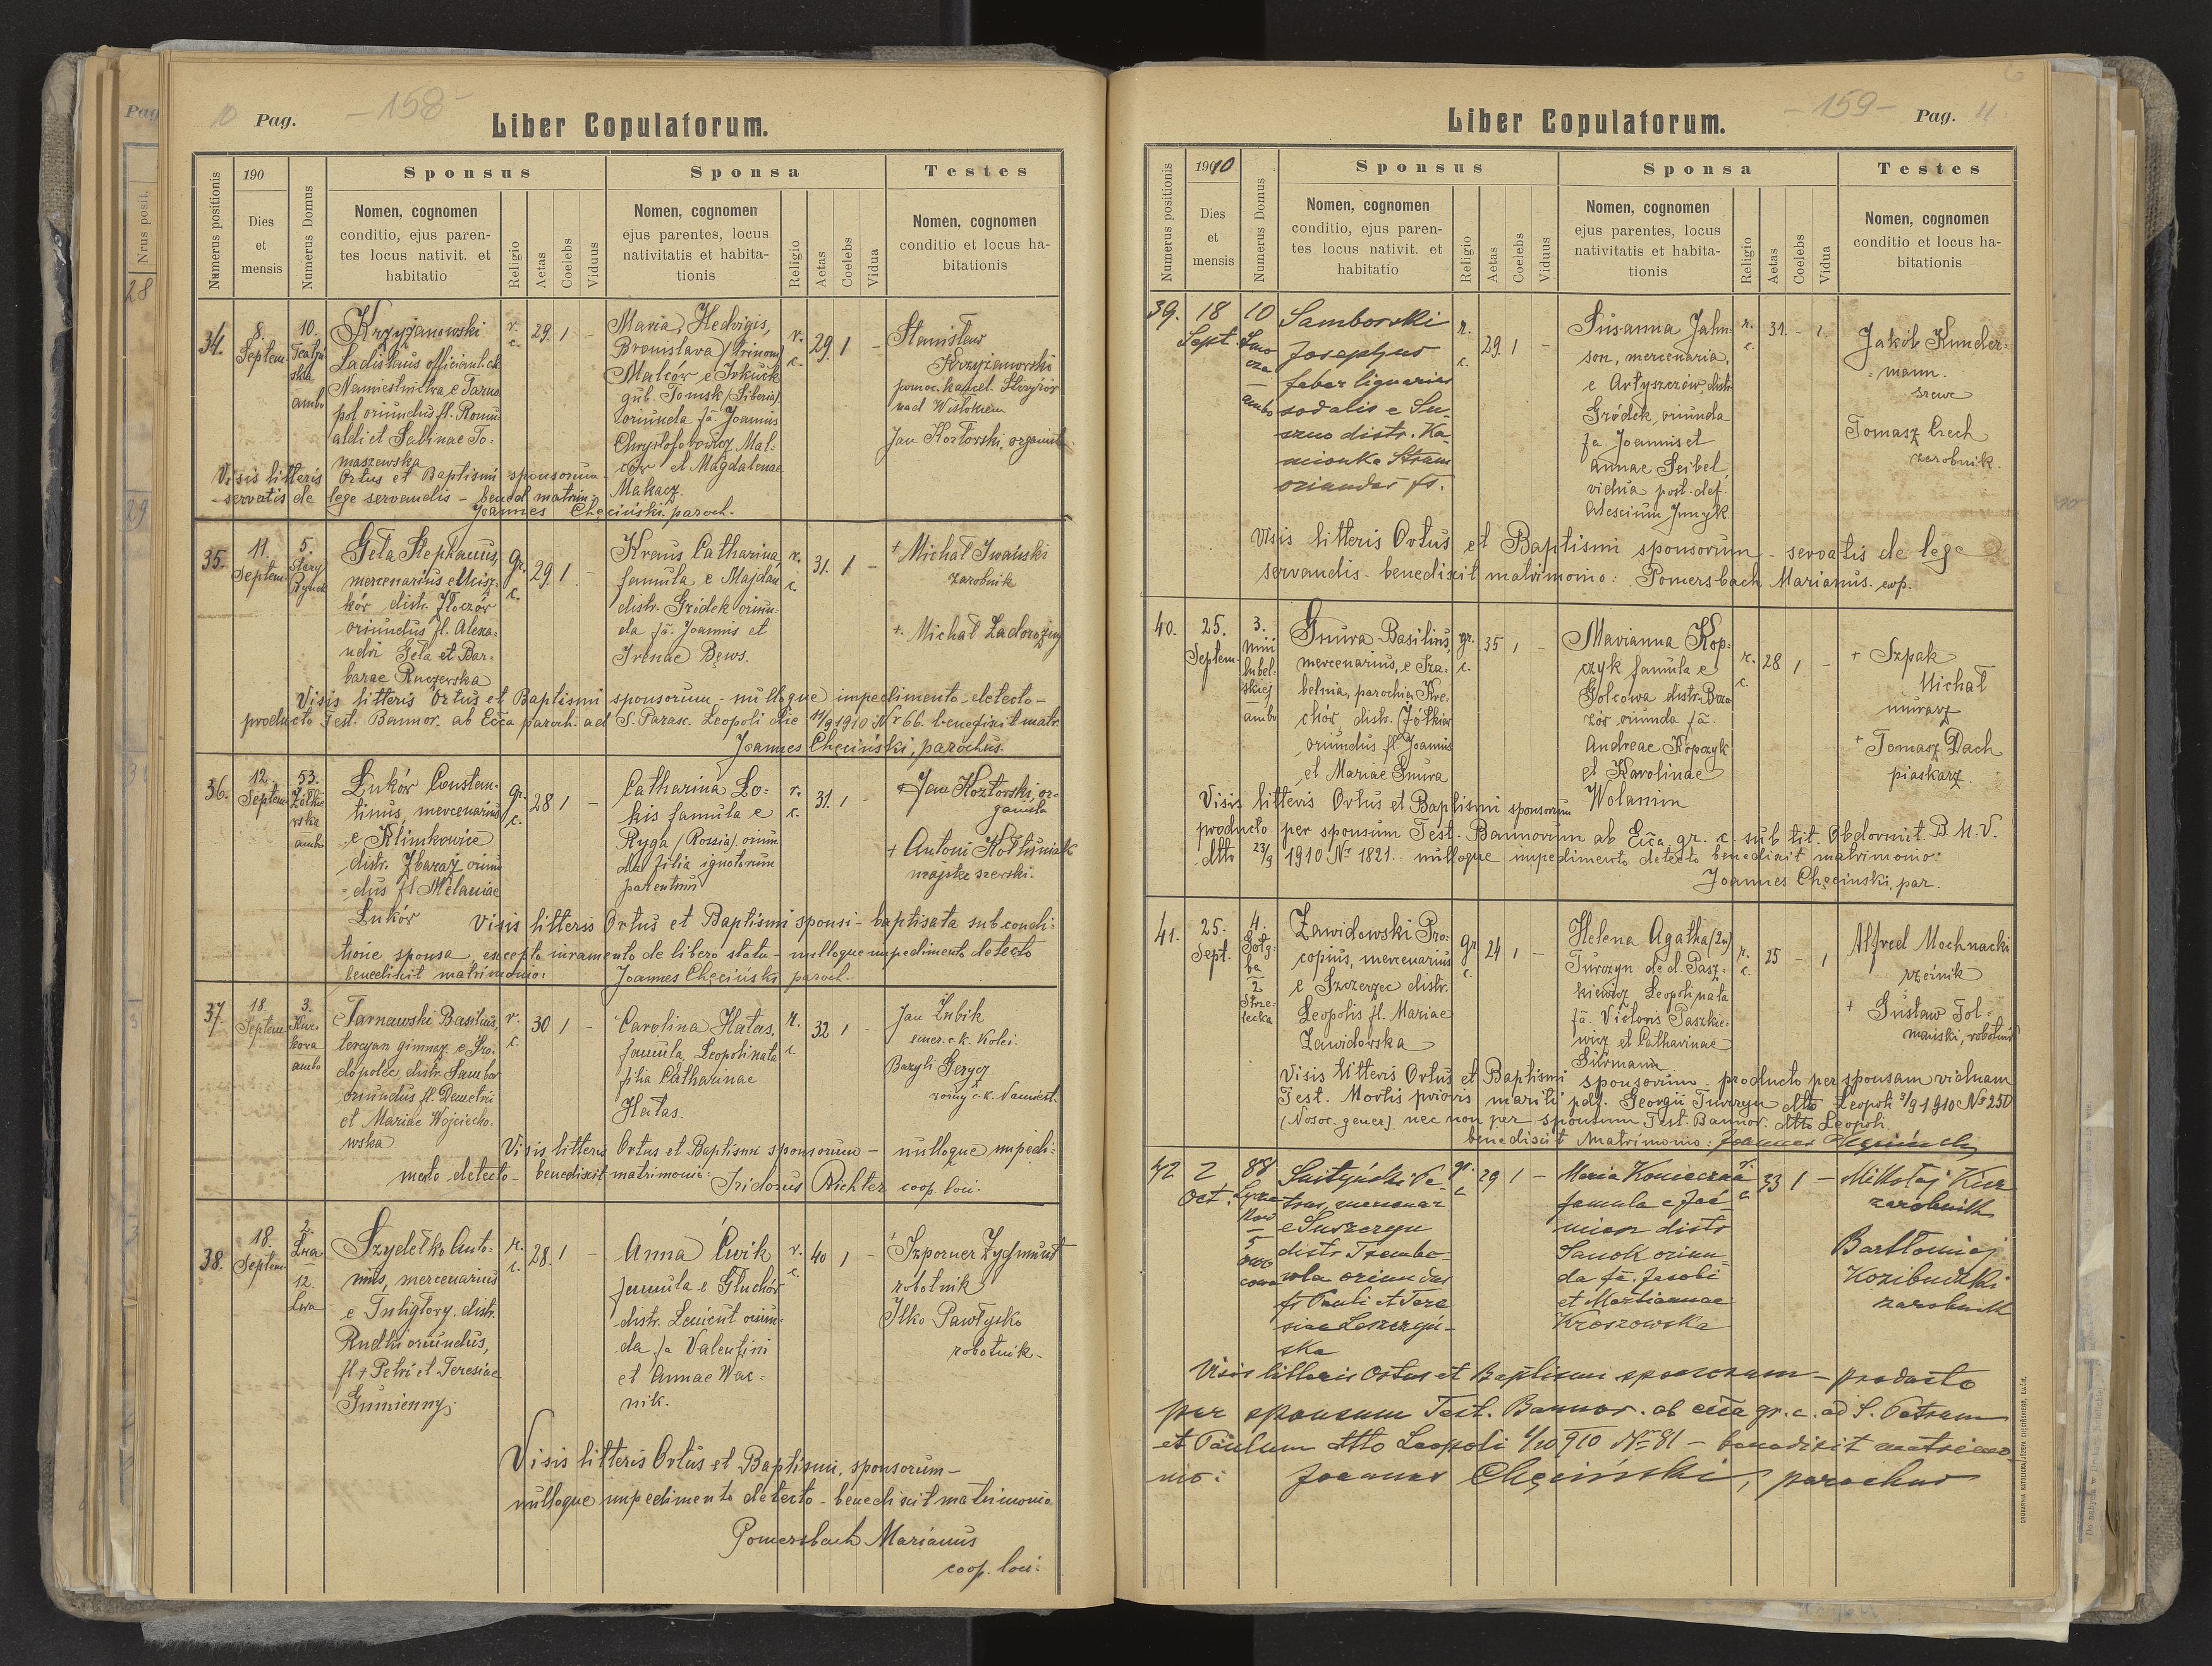 10 Pag.
-158-
Liber Copulatorum.
Numerus positionis
190
Dies
et
mensis
Numerus Domus
Sponsus
Nomen, cognomen
conditio, ejus paren-
tes locus nativit. et
habitatio
Religio
Aetas
Coelebs
Viduus
Sponsa
Nomen, cognomen
ejus parentes, locus
nativitatis et habita-
tionis
Religio
Aetas
Coelebs
Vidua
Testes
Nomen, cognomen
conditio et locus ha-
bitationis
34.
8.
Septem.
10.
ambo
Krzyżanowski
Ladislaus officiant. ck
Namiestnictwa e Tarno
pol oriundus fl. Romu
aldi et Sabinae To-
maszewska
r. c.
29. 1 -
Maria, Hedvigis,
Bronislava (trinom)
Malców e Irkuck
gub. Tomsk (Siberia)
oriunda fa Joannis
Chrystoforowicz Mal-
ców et Magdalenae
Makacz.
r. c.
29. 1 -
Stanisław
Krzyżanowski
pomoc. kancel. Strzyżów
nad Wisłokiem
Jan Kozłowski, organista
Visis litteris Ortus et Baptismi sponsorum
servatis de lege servandis - bened. matrim:
Joannes Chęciński paroch.
35.
11.
Septem.
5.
Stary
Rynek
Geła Stephanus,
mercenarius e Meisz-
ków distr. Złoczów
oriundus fl. Alexa-
ndri Geła et Bar-
barae Ruczewska
gr. c.
29. 1 -
Kraus Catharina,
famula e Majdan
distr. Gródek oriun-
da fa. Joannis et
Irenae Bews.
r. c.
31. 1 -
+ Michał Iwański
zarobnik
+ Michał Zadorożny
Visis litteris Ortus et Baptismi sponsorum - nulloque impedimento detecto -
producto Test. Bannor. ab Ecca paroch. ad S. Parasc. Leopoli die 11/9 1910 Nr 66. benedixit matr.
Joannes Chęciński, parochus.
36.
12.
Septem.
53.
Żółkie
wska
ambo
Łuków Constan-
tinus, mercenarius
e Klimkowce
distr. Zbaraż oriun
dus fl. Melaniae
Łuków
gr. c.
28 1 -
Catharina Lo-
kis famula e
Ryga (Rossia). oriun
da filia ignotorum
parentum
r. c.
31. 1 -
Jan Kozłowski, or-
ganista
+ Antoni Hołtiśniak
majster szewski.
Visis litteris Ortus et Baptismi sponsi - baptisata sub condi-
tione sponsa, excepto iuramento de libero statu - nulloque impedimento detecto
benedixit matrimonio: Joannes Chęciński paroch.
37.
18.
Septem.
3.
Kur-
kowa
ambo
Tarnawski Basilius,
tercyan gimnaz. e Pro-
dopolec distr. Sambor
oriundus fl. Demetrii
et Mariae Wojciecho-
wska
r. c.
30 1 -
Carolina Hatas,
famula, Leopoli nata
filia Catharinae
Hatas.
r. c.
32 1 -
Jan Zubik
emer. c. k. Kolei.
Bazyli Gerycz
woźny c. k. Namiest.
Visis litteris Ortus et Baptismi sponsorum - nulloque impedi-
mento detecto - benedixit matrimonio: Isidorus Richter coop. loci.
38.
18.
Septem.
2.
Lwa
12.
Lwa
Szydełko Anto-
nius, mercenarius
e Tuligłowy distr.
Rudki oriundus,
fl + Petri et Teresiae
Gumienny.
r. c.
28. 1 -
Anna Ćwik
famula e Głuchów
distr. Łańcut oriun-
da fa Valentini
et Annae Wac-
nik.
r. c.
40 1 -
+ Szporner Zygmunt
robotnik
Ilko Pawłysko
robotnik.
Visis litteris Ortus et Baptismi sponsorum -
nulloque impedimento detecto - benedixit matrimonio
Pomersbach Marianus
coop. loci.
Liber Copulatorum.
-159-
Pag. 11.
Numerus positionis
1910
Dies
et
mensis
Numerus Domus
Sponsus
Nomen, cognomen
conditio, ejus paren-
tes locus nativit. et
habitatio
Religio
Aetas
Coelebs
Viduus
Sponsa
Nomen, cognomen
ejus parentes, locus
nativitatis et habita-
tionis
Religio
Aetas
Coelebs
Vidua
Testes
Nomen, cognomen
conditio et locus ha-
bitationis
39.
18
Sept.
10
ambo
Samborski
Josephus
faber lignarius
sodalis e Su-
szno distr. Ka-
mionka Strum
oriundus fs.
r. c.
29. 1 -
Susanna Jahn-
son, mercenaria,
e Artyszczów, distr.
Gródek, oriunda
fa Joannis et
Annae Seibel,
vidua post. def.
r. c.
31. - 1.
Jakób Kunder-
mann.
szewc
Tomasz Czech
zarobnik.
Visis litteris Ortus et Baptismi sponsorum - servatis de lege
servandis - benedixit matrimonio: Pomersbach Marianus. coop.
40.
25.
Septem.
3.
Unii
lubel-
skiej
ambo
Gnura Basilius,
mercenarius, e Sza-
belnia, parochia Kre-
chów distr. Żółkiew
oriundus fl. Joannis
et Mariae Gnura
gr. c.
35 1 -
Marianna Kop-
czyk famula e
Golcowa distr. Brzo
zów oriunda fa.
Andreae Kopczyk
et Karolinae
Wolanin
r. c.
28 1 -
+ Szpak
Michał
murarz
+ Tomasz Dach
piaskarz.
Visis litteris Ortus et Baptismi sponsorum
producto per sponsum Test. Bannorum ab Ecca gr. c. sub tit. Obdormit. B. M. V.
dtto 23/9 1910 Nr 1821.. nulloque impedimento detecto benedixit matrimonio:
Joannes Chęciński, par.
41.
25.
Sept.
4.
Gołę-
bia
2
Strze-
lecka
Zawidowski Pro-
copius, mercenarius
e Szczerzec distr.
Leopolis fl. Mariae
Zawidowska
gr. c.
24 1 -
Helena Agatha (2n)
Turczyn de d. Pasz-
kiewicz Leopoli nata
fa. Victoris Paszkie-
wicz et Catharinae
Surmann
r. c.
25 - 1
Alfred Mochnacki
rzeźnik
+ Gustaw Tol-
mański, robotnik
Visis litteris Ortus et Baptismi sponsorum - producto per sponsam viduam
Test. Mortis prioris mariti pdf. Georgii Turczyn dtto Leopoli 3/9 1910 Nr 250
(Nosoc. gener). nec non per sponsum Test. Bannor. dtto Leopoli.
benedixit Matrimonio: Joannes Chęciński
42
2
Oct.
88
5
Petrus, mercenar
distr Trembo-
wla oriundus
fs Pauli et Tere
siae Leszczyń-
ska
gr. c
29 1 -
Maria Konieczna
famula e Jać-
mierz distr
Sanok oriun-
da fa. Jacobi
et Mariannae
Kroszowska
r. c
33 1 -
Mikołaj Kuz
zarobnik
Bartłomiej
zarobnik
Visis litteris Ortus et Baptismi sponsorum - producto
per sponsum Test. Bannor. ab ecca gr. c. ad S. Petrum
et Paulum dtto Leopoli 1/10 910 Nr 81 - benedixit matrimo-
nio: Joannes Chęciński, parochus